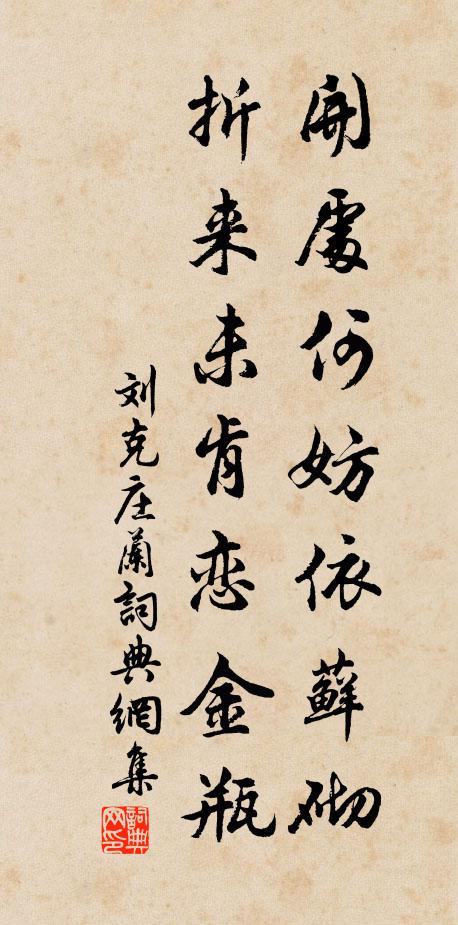 開處何妨依蘚砌
折来未肯恋金瓶
刘克庄蘭詞典網集
詞典网印